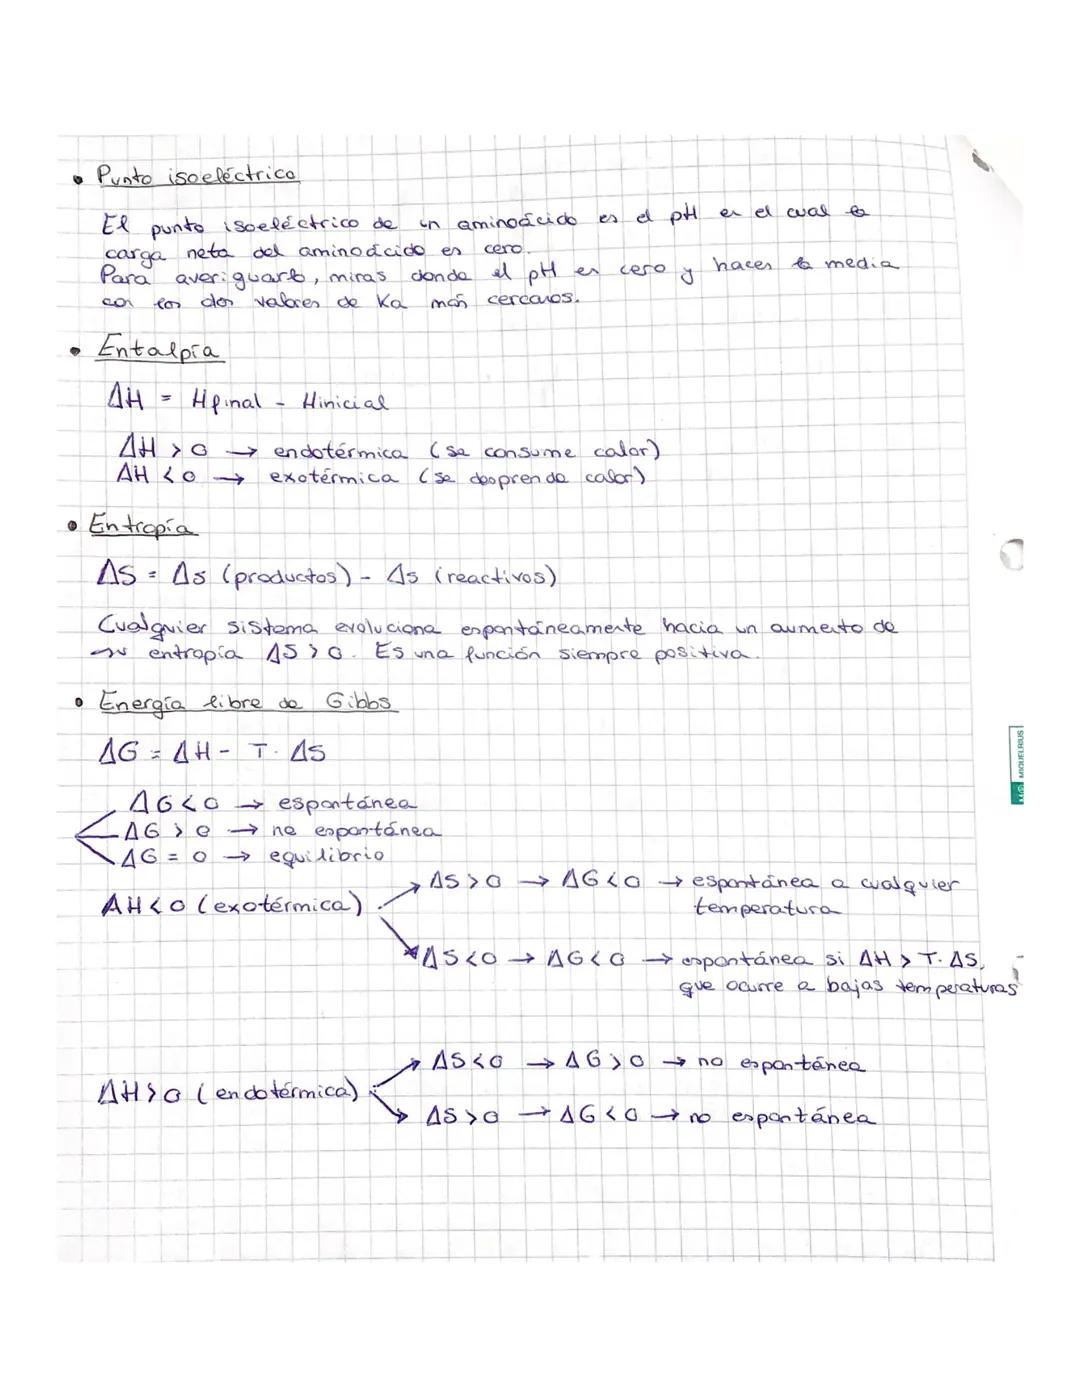 • Punto isoeléctrico
El punto isoeléctrico de un aminoácido es el pH en el cual la
carga neta del aminoácido es cero.
Para averiguarlo, miras donde el pH es cero y haces la media
con los dos valores de Ka más cercanos.
• Entalpía
ΔH = Hfinal - Hinicial
ΔH > 0 → endotérmica (se consume calor)
ΔH < 0 → exotérmica (se desprende calor)
• Entropía
ΔS = Δs (productos) - Δs (reactivos)
Cualquier sistema evoluciona espontáneamente hacia un aumento de
su entropía ΔS > 0. Es una función siempre positiva.
• Energía libre de Gibbs
ΔG = ΔH - T · ΔS
ΔG < 0 → espontánea
ΔG > 0 → no espontánea
ΔG = 0 → equilibrio
ΔH < 0 (exotérmica)
ΔS > 0 → ΔG < 0 → espontánea a cualquier
temperatura
ΔS < 0 → ΔG < 0 → espontánea si ΔH > T · ΔS,
que ocurre a bajas temperaturas
ΔH > 0 (endotérmica)
ΔS < 0 → ΔG > 0 → no espontánea
ΔS > 0 → ΔG < 0 → no espontánea
MIQUELRIUS